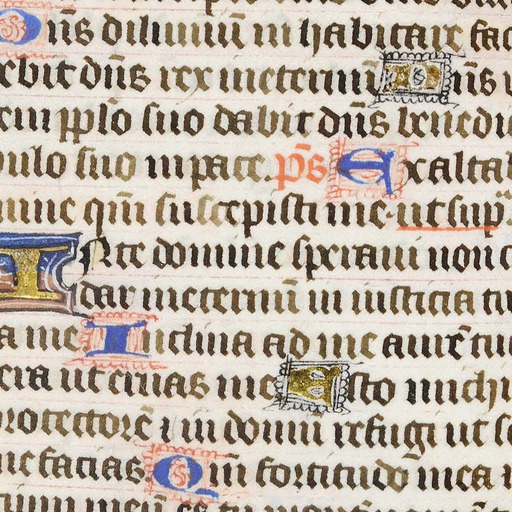 Dn̄s diluuiū inhabitare fac
ebit dn̄s rex ineternū Dn̄s
pp̄lo suo dabit dn̄s benedi
pulo suo inpace. p̄s Exalta
mine qm̄ suscepisti me. ut sup
In te domine speraui non
dar ineternū in iusticia tu
a me Inclina ad me aurē tu
era ut eruas me Esto michi
protectorē ⁊ in domū refugi ut
me facias Qm̄ fortitudo mea